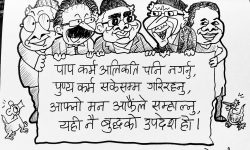 पाप कर्म अलिकति पनि नगर्नु,
पुण्य कर्म सकेसम्म गरिरहनु,
आफ्नो मन आफैले सम्हाल्नु,
यही नै बुद्धको उपदेश हो ।